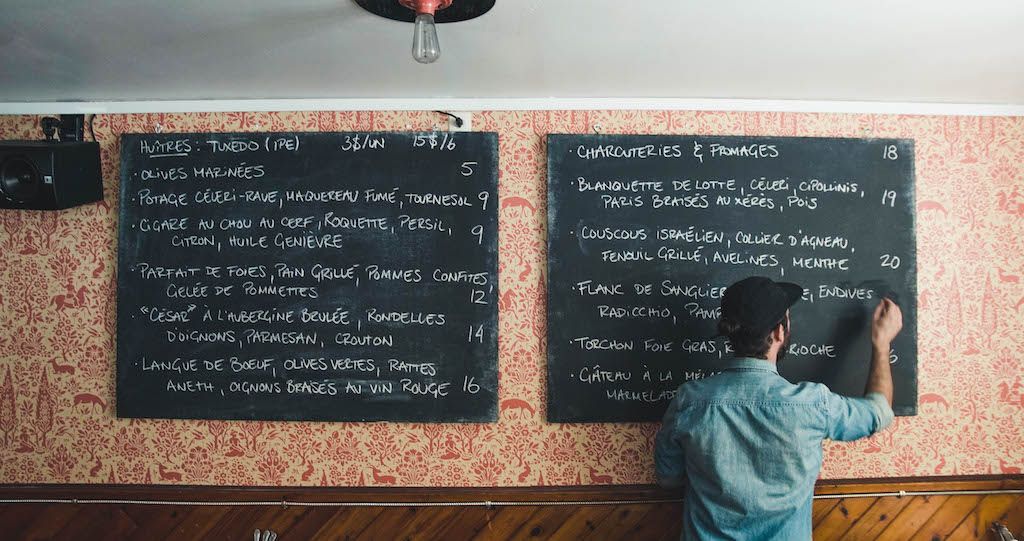 HUÎTRES : TUXEDO (IPE) 3$/UN 15$/6
· OLIVES MARINÉES 5
· POTAGE CÉLERI-RAVE, MAQUEREAU FUMÉ, TOURNESOL 9
· CIGARE AU CHOU AU CERF, ROQUETTE, PERSIL,
CITRON, HUILE GENIÈVRE 9
· PARFAIT DE FOIES, PAIN GRILLÉ, POMMES CONFITES,
GELÉE DE POMMETTES 12
· "CÉSAR" À L'AUBERGINE BRULÉE, RONDELLES
D'OIGNONS, PARMESAN, CROUTON 14
· LANGUE DE BOEUF, OLIVES VERTES, RATTES
ANETH, OIGNONS BRAISÉS AU VIN ROUGE 16
· CHARCUTERIES & FROMAGES 18
· BLANQUETTE DE LOTTE, CÉLERI, CIPOLLINIS,
PARIS BRAISÉS AU XÉRÈS, POIS 19
· COUSCOUS ISRAÉLIEN, COLLIER D'AGNEAU,
FENOUIL GRILLÉ, AVELINES, MENTHE 20
· FLANC DE SANGLIER ENDIVES
RADICCHIO,
· TORCHON FOIE GRAS,
· GÂTEAU À LA
MARMELADE